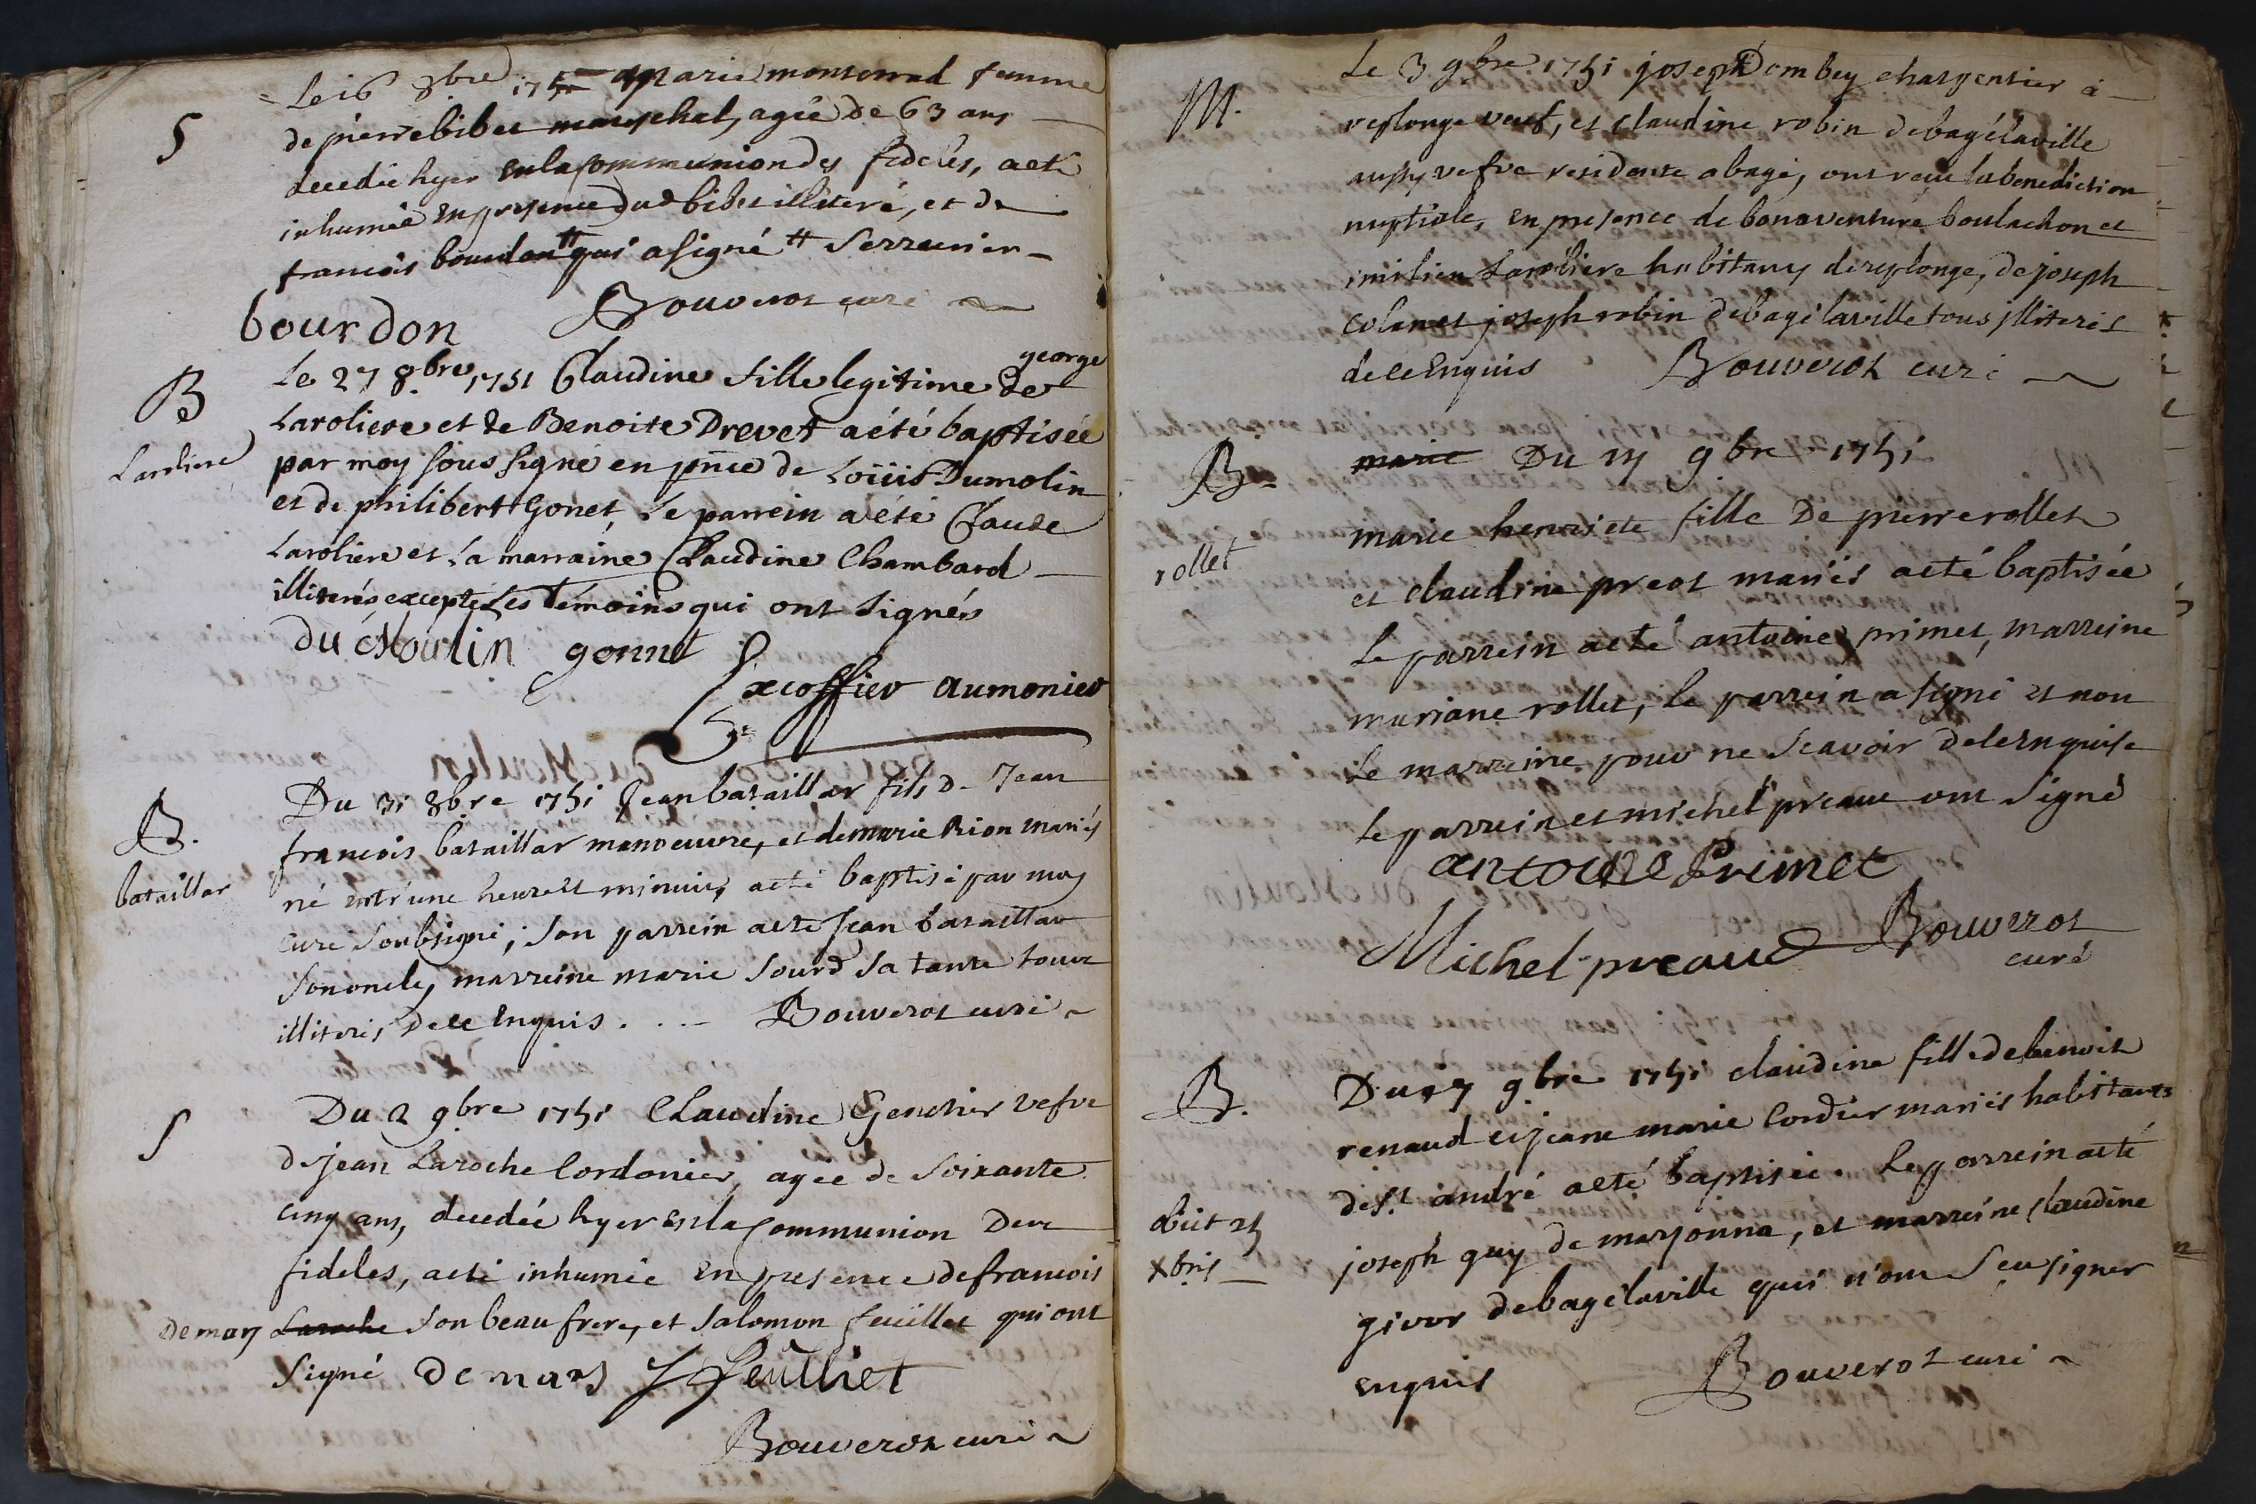 Le 16 8bre 1751 Marie monterrad femme
S
de pierre bibet mareschal, agée de 63 ans
decedée hyer en la communion des fideles, a eté
inhumée en presence dud bibet illiteré, et de
francois bourdon # qui a signé # Serrurier
bourdon Bouverot curé
B
Laroliere
Le 27 8.bre 1751 Claudine fille legitime de george
Laroliere et de Benoite Drevet a été baptisée
par moy sous signé en pnce de Loüis Dumolin
et de philibert Gonet, Le parrein a été Claude
Laroliere et La marraine Claudine Chambard
illiterés excepté Les Témoins qui ont signés
Du Moulin gonnet
Excoffier aumonier
B.
bataillar
Du 31 8bre 1751 Jean bataillar fils de Jean
francois bataillar manoeuvre, et de marie Rion mariés
né entr'une heure et minuit, a eté baptisé par moy
curé soubsigné; son parrein a eté Jean bataillar
son oncle, marreine marie sourd sa tante touts
illiterés de ce enquis. Bouverot curé
S
Du 2 9bre 1751 Claudine Genthier vefve
de jean Laroche Cordonier, agée de soixante
cinq ans, decedée hyer en la communion des
fideles, a eté inhumée en presence de francois
Demars Laroche son beau frere, et salomon feuillet qui ont
signé De mars S feulliet
Bouverot curé
M.
Le 3 9bre 1751 joseph Dombey charpentier a
replonge veuf, et claudine robin de bagé la ville
aussy vefve residente a bagé, ont recu la benediction
nuptiale, en presence de bonaventure boulachon et
emilien Laroliere habitans de replonge, de joseph
colanet joseph robin de bagé la ville tous illiterés
de ce enquis Bouverot curé
B.
rollet
marie Du 14 9bre 1751
marie henriete fille De pierre rollet
et claudine preot mariés a eté baptisée
Le parrein a eté antoine primet, marreine
mariane rollet, le parrein a signé et non
la marreine pour ne scavoir de ce enquise
le parrein et michel preaut ont signé
antoine Primet
Michel preaud Bouverot
curé
B.
obiit 25
Xbris
Du 17 9bre 1751 claudine fille de benoit
renaud et jeane marie Cordier mariés habitants
de s.t andré a eté baptisée. Le parrein a eté
joseph guy de marsonna, et marreine claudine
givor de bagé la ville qui n'ont sceu signer
enquis Bouverot curé